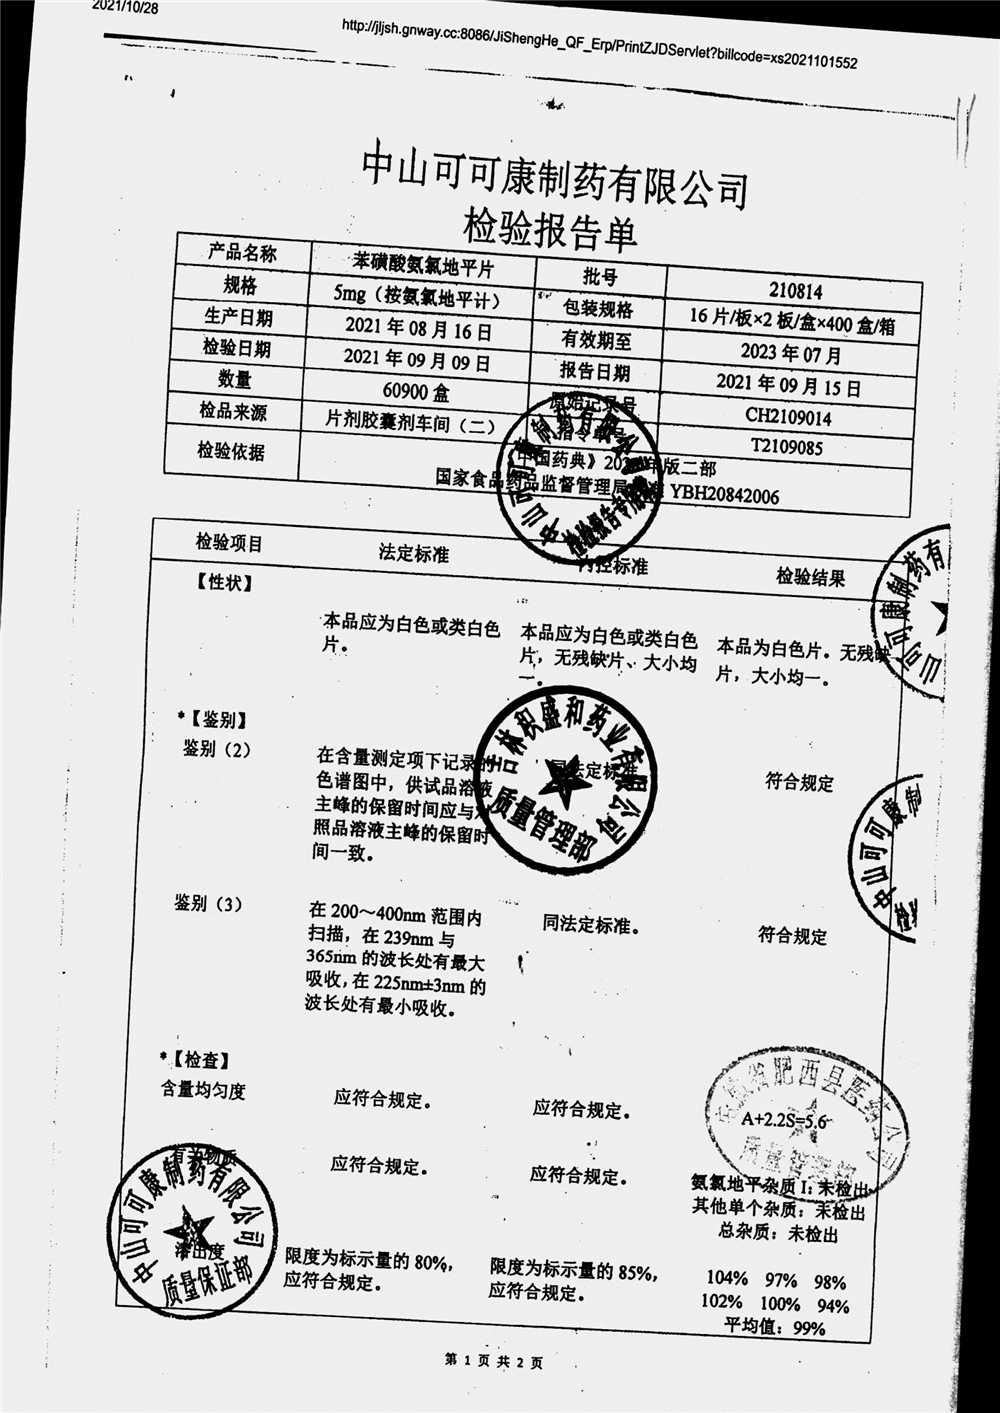 2021/10/28
http://jljsh.gnway.cc:8086/JiShengHe_QF_Erp/PrintZJDServlet?billcode=xs2021101552
中山可可康制药有限公司
检验报告单
产品名称 苯磺酸氨氯地平片 批号 210814
规格 5mg（按氨氯地平计） 包装规格 16 片/板×2 板/盒×400 盒/箱
生产日期 2021 年 08 月 16 日 有效期至 2023 年 07 月
检验日期 2021 年 09 月 09 日 报告日期 2021 年 09 月 15 日
数量 60900 盒 原始记录号 CH2109014
检品来源 片剂胶囊剂车间（二） 指令单号 T2109085
检验依据 中国药典》 版二部
国家食品药品监督管理局 YBH20842006
中山可可康制药有限公司
检验报告专用章
检验项目 法定标准 内控标准 检验结果
【性状】
本品应为白色或类白色片。
本品应为白色或类白色片，无残缺片、大小均一。
本品为白色片。无残缺片，大小均一。
山可可康制药有
*【鉴别】
鉴别（2）
在含量测定项下记录的
色谱图中，供试品溶液
主峰的保留时间应与对
照品溶液主峰的保留时
间一致。
同法定标准
符合规定
吉林积盛和药业有限公司
质量管理部
中山可可康制
检
鉴别（3）
在 200～400nm 范围内
扫描，在 239nm 与
365nm 的波长处有最大
吸收，在 225nm±3nm 的
波长处有最小吸收。
同法定标准。
符合规定
*【检查】
含量均匀度 应符合规定。 应符合规定。 A+2.2S=5.6
安徽省肥西县医药公司
质量管理部
有关物质 应符合规定。 应符合规定。
氨氯地平杂质 I：未检出
其他单个杂质：未检出
总杂质：未检出
中山可可康制药有限公司
质量保证部
溶出度
限度为标示量的 80%，
应符合规定。
限度为标示量的 85%，
应符合规定。
104% 97% 98%
102% 100% 94%
平均值：99%
第 1 页 共 2 页